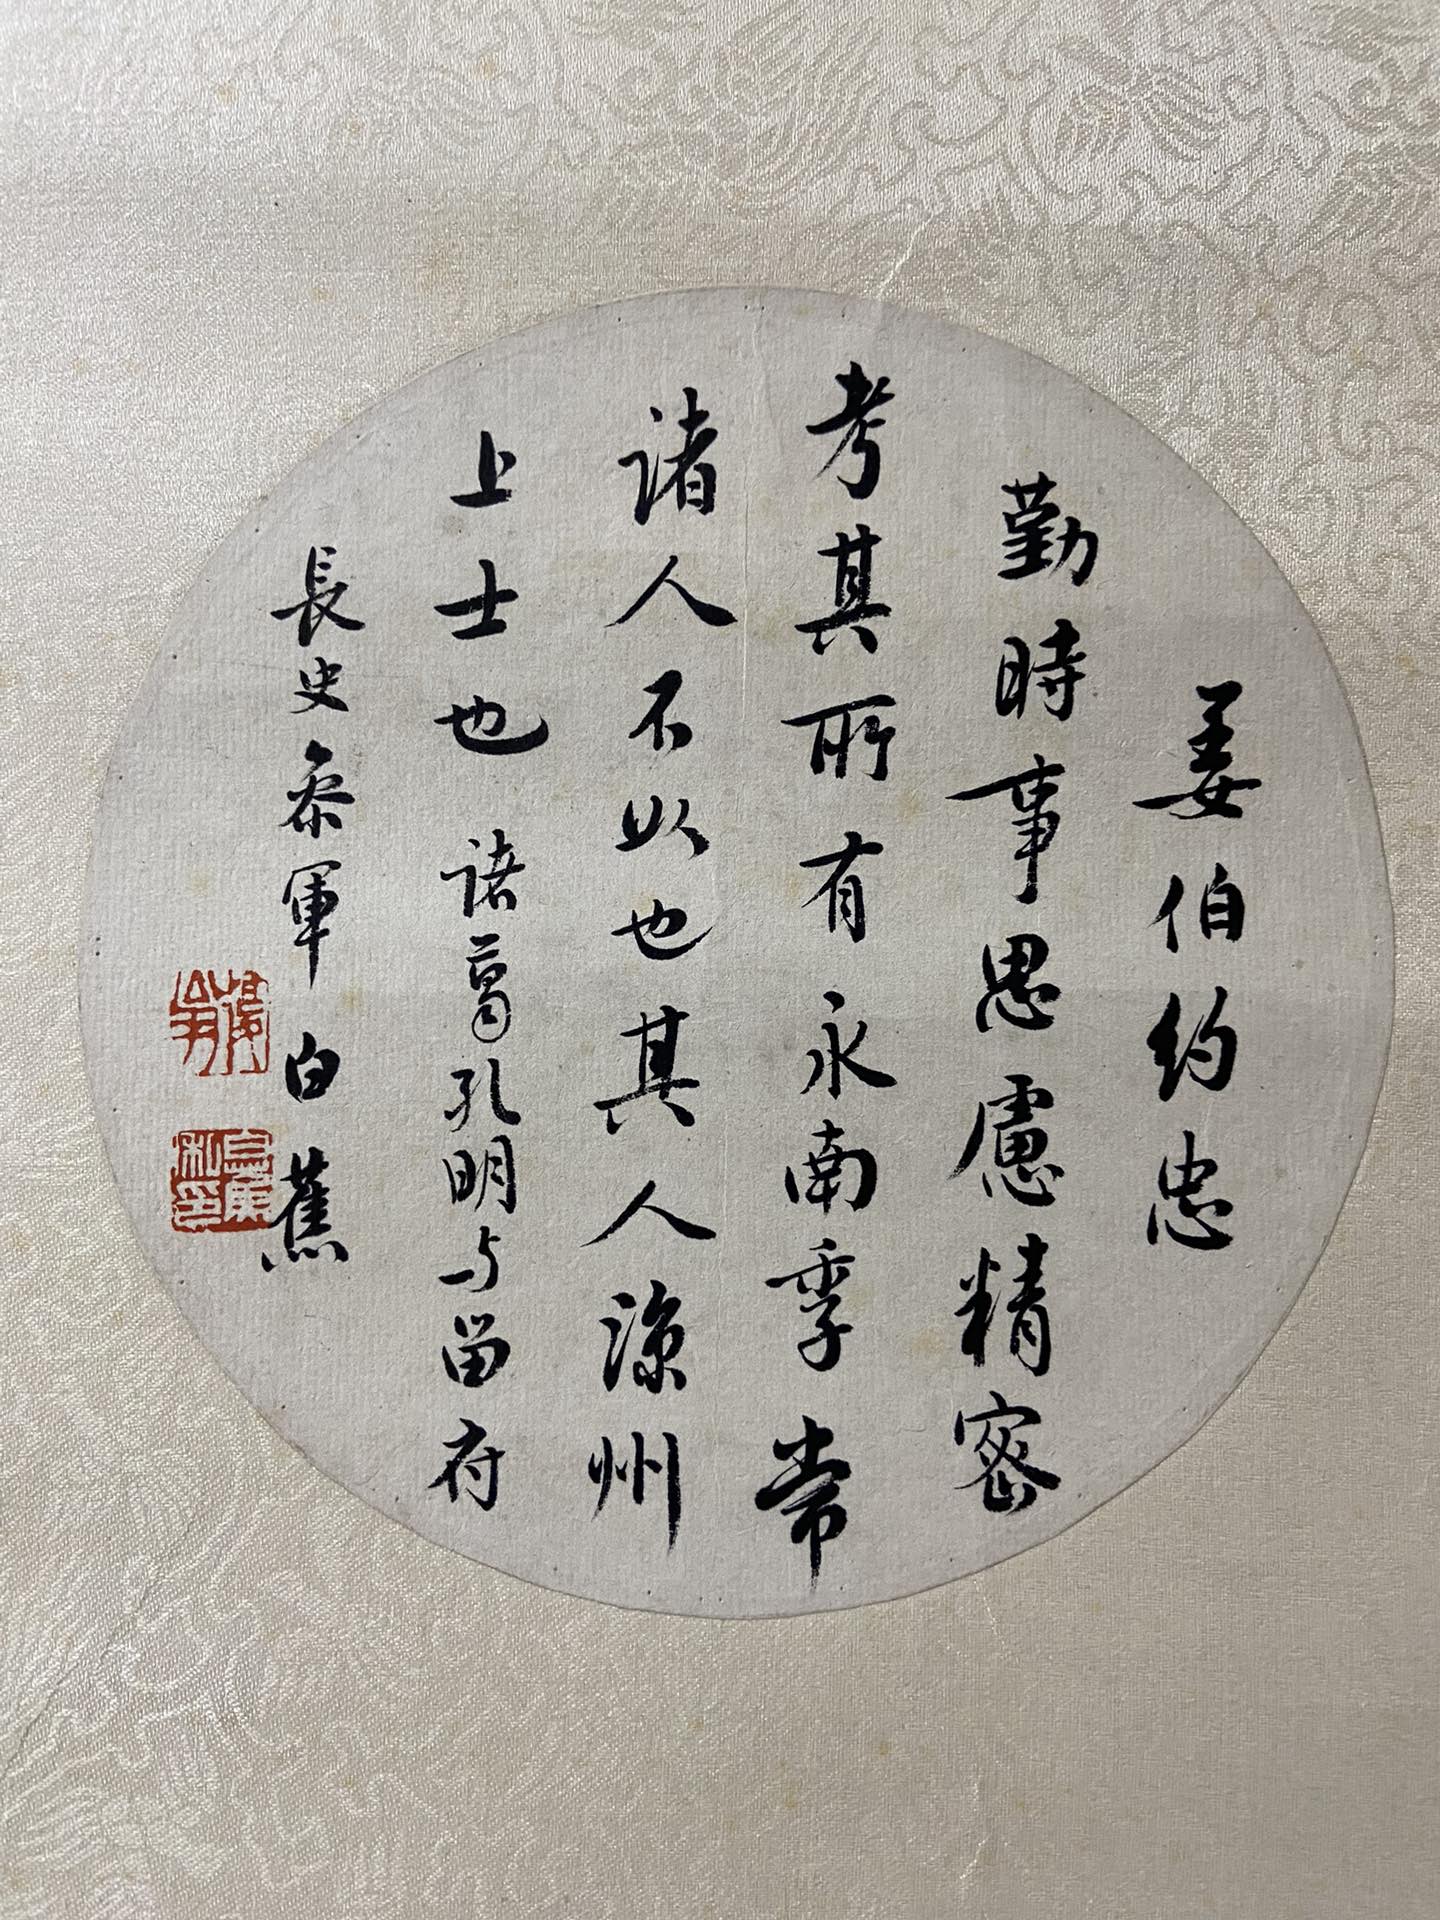 姜伯约忠
勤時事思慮精密
考其所有永南季常
諸人不如也其人涼州
上士也 诸葛孔明与留府
長史叅軍 白蕉